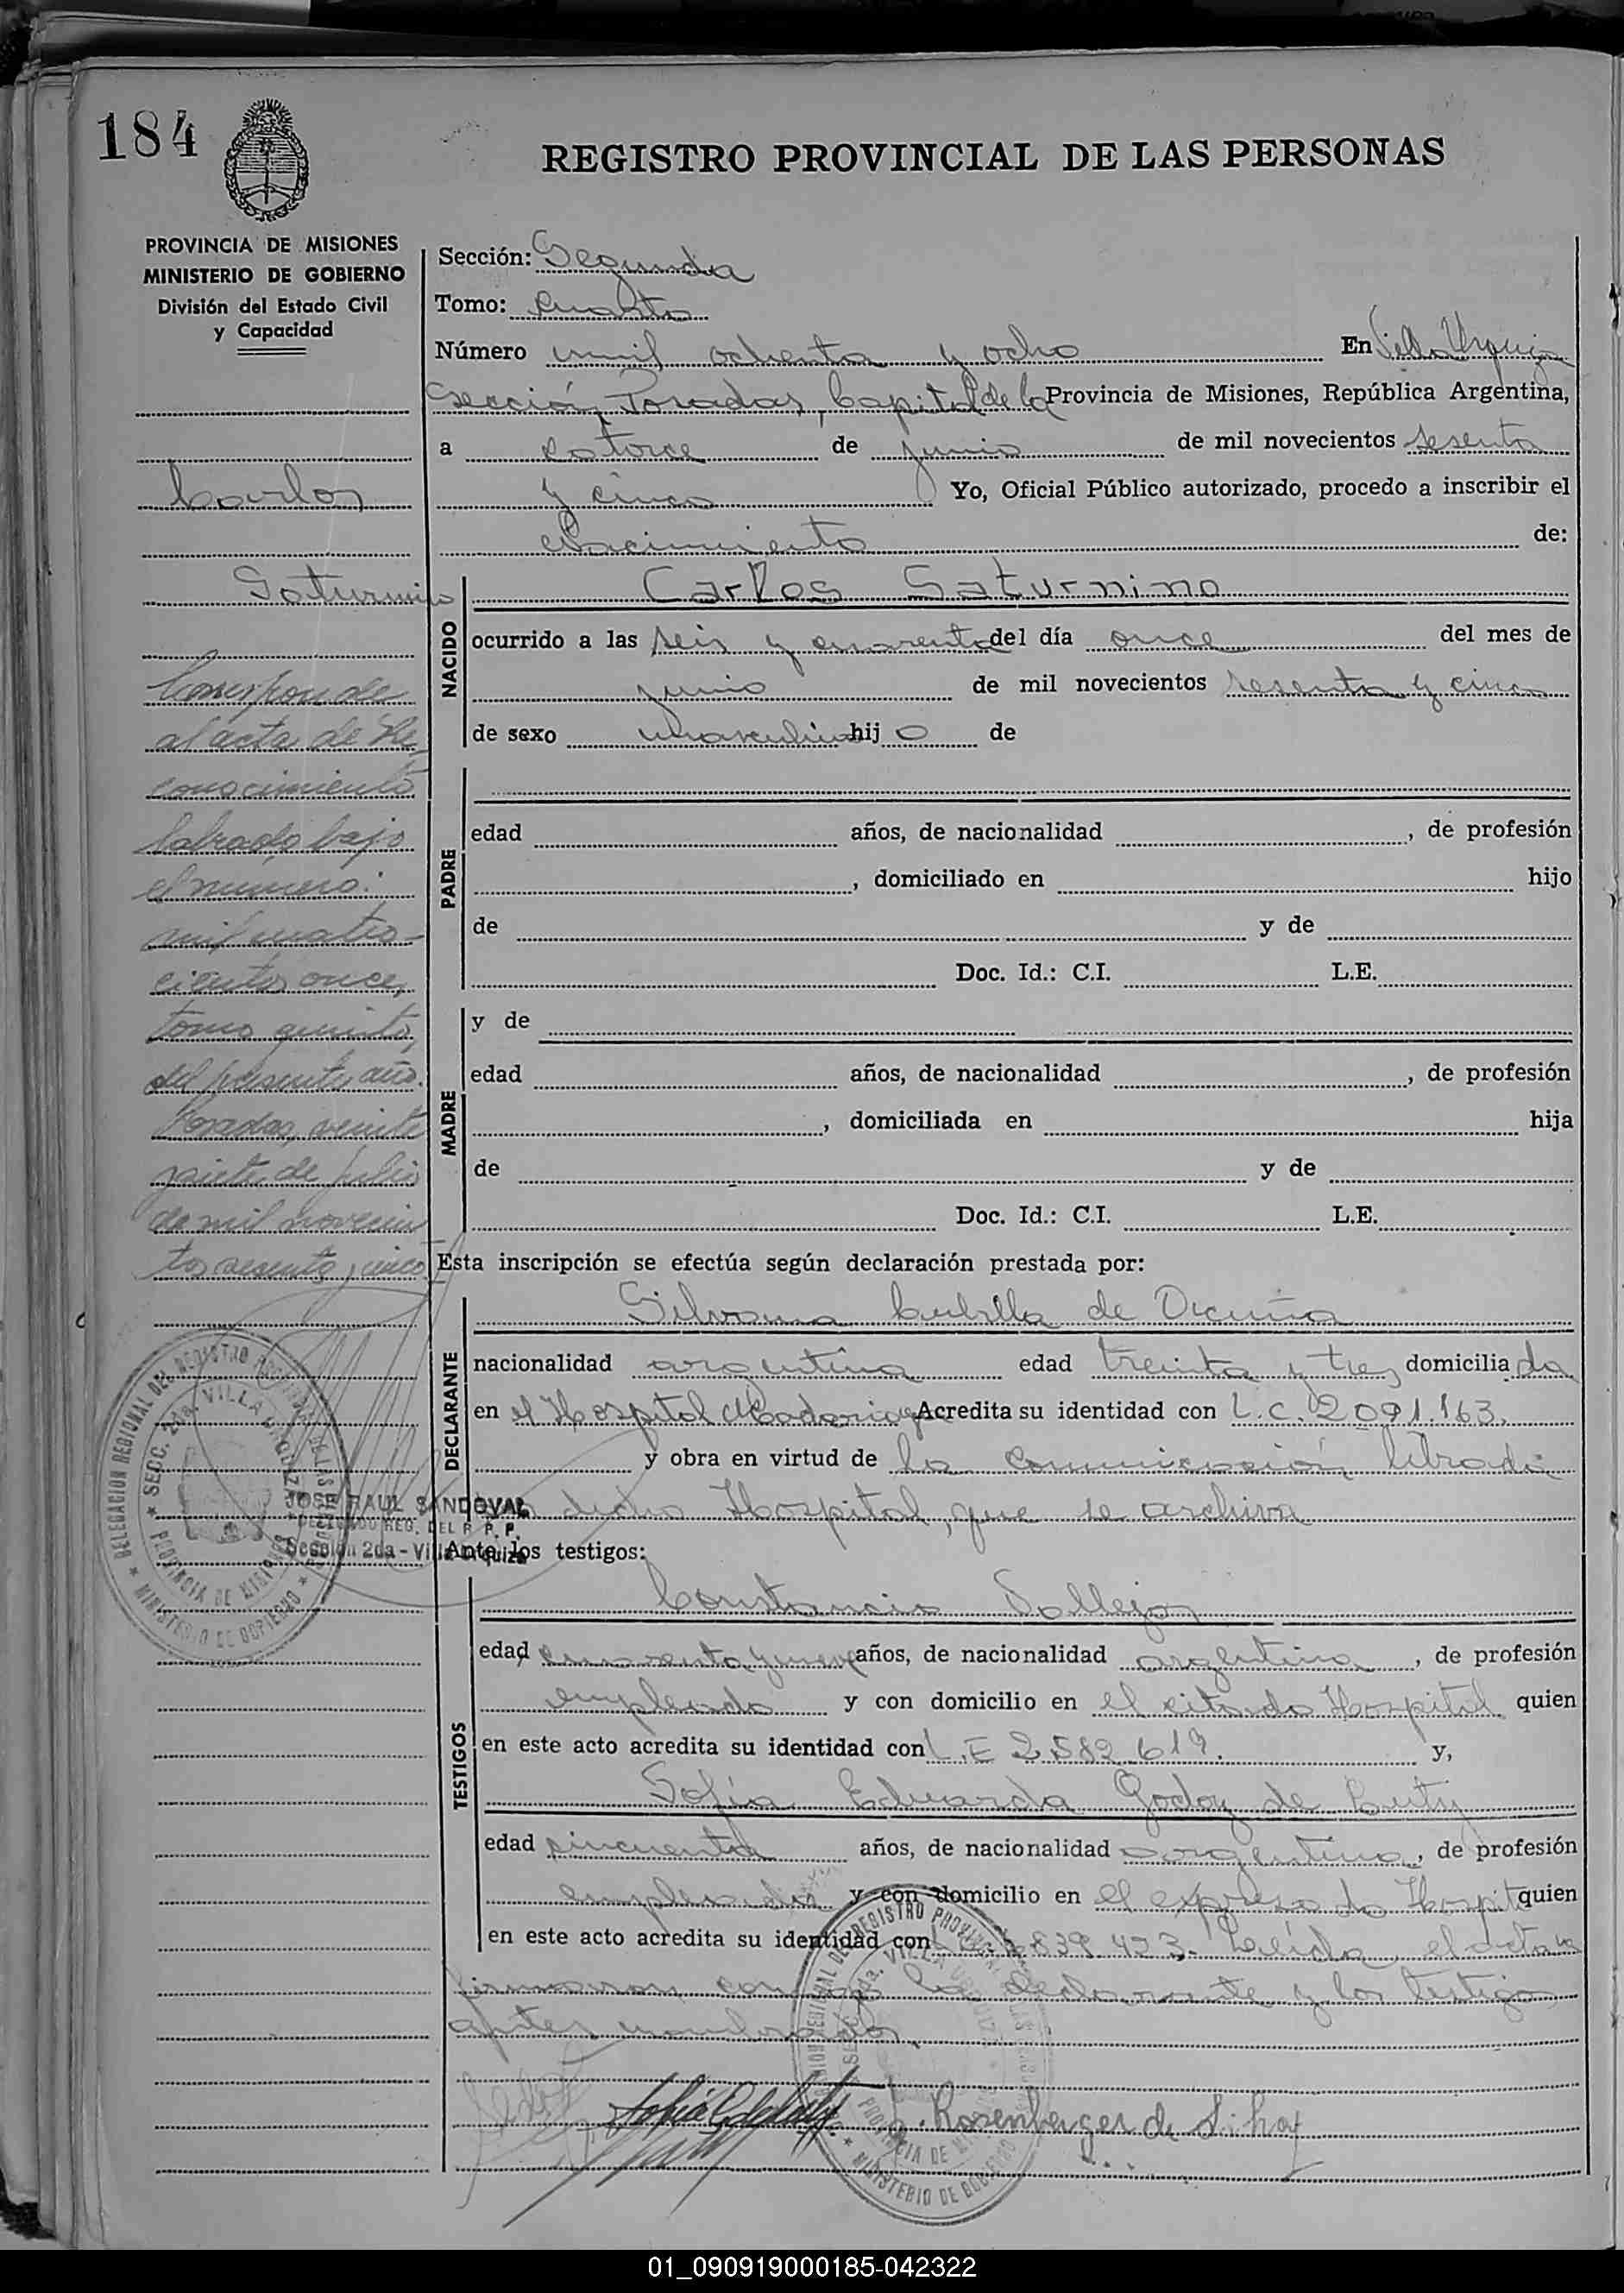 184
REGISTRO PROVINCIAL DE LAS PERSONAS
PROVINCIA DE MISIONES
MINISTERIO DE GOBIERNO
División del Estado Civil
y Capacidad
Sección: Segunda
Tomo: cuarto
Número mil ochenta y ocho En Villa Urquiza
Sección, Posadas, Capital de la Provincia de Misiones, República Argentina,
a catorce de junio de mil novecientos sesenta
y cinco Yo, Oficial Público autorizado, procedo a inscribir el
Nacimiento de:
Carlos
Saturnino
Corresponde
al acta de Re
conocimiento
labrado bajo
el número:
mil cuatro-
cientos once,
tomo quinto,
del presente año.
Posadas, veinte
siete de julio
de mil novecien
tos sesenta y cinco
NACIDO
Carlos Saturnino
ocurrido a las seis y cuarenta del día once del mes de
junio de mil novecientos sesenta y cinco
de sexo masculino hijo de
PADRE
edad años, de nacionalidad , de profesión
, domiciliado en hijo
de y de
Doc. Id.: C.I. L.E.
MADRE
y de
edad años, de nacionalidad , de profesión
, domiciliada en hija
de y de
Doc. Id.: C.I. L.E.
Esta inscripción se efectúa según declaración prestada por:
DECLARANTE
Silvana Cubilla de Vicuña
nacionalidad argentina edad treinta y tres domiciliada
en el Hospital Madariaga Acredita su identidad con L.C. 2.091.163.
y obra en virtud de la comunicación librada
dicho Hospital, que se archiva
Ante los testigos:
JOSE RAUL SANDOVAL
DELEGADO REG. DEL R. P. P.
Sección 2da - Villa Urquiza
DELEGACION REGIONAL DEL REGISTRO PROVINCIAL DE LAS PERSONAS
SECC. 2da. VILLA URQUIZA
PROVINCIA DE MISIONES
MINISTERIO DE GOBIERNO
TESTIGOS
Constancio Vallejos
edad cuarenta y nueve años, de nacionalidad argentina, de profesión
empleado y con domicilio en el citado Hospital quien
en este acto acredita su identidad con L.E 2.582.619. y,
Sofía Eduarda Godoy de Cuty
edad cincuenta años, de nacionalidad argentina, de profesión
empleada y con domicilio en el expresado Hospit quien
en este acto acredita su identidad con 839.423. Leída el acta
firmaron conmigo la declarante y los testigos
antes nombrados.
Rosenberger de
01_090919000185-042322